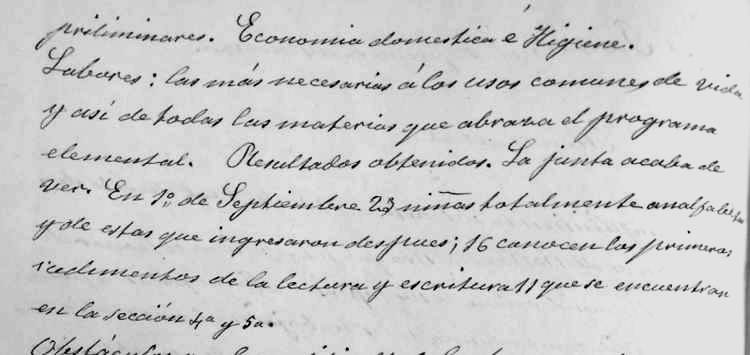 priliminares. Economia domestica é Higiene.
Labores: las más necesarias á los usos comunes de vida
y así de todas las materias que abraza el programa
elemental. Resultados obtenidos. La junta acaba de
ver. En 1º de Septiembre 23 niñas totalmente analfabetas
y de estas que ingresaron despues; 16 conocen los primeros
rudimentos de la lectura y escritura 11 que se encuentran
en la sección 4ª y 5ª.
Obstáculos